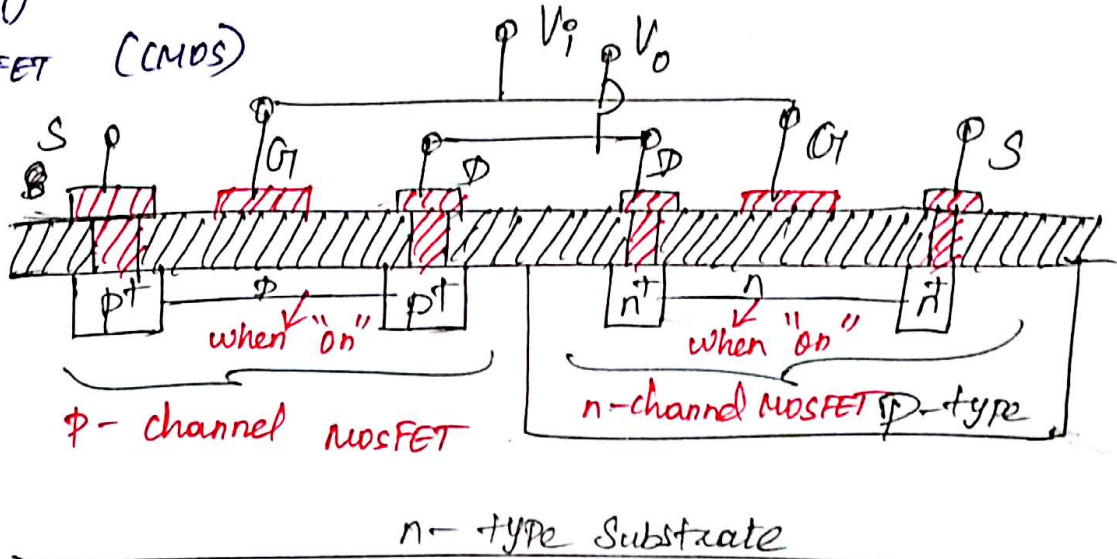 (CMOS)
Vi Vo
S G D D G S
p+ p p+ n+ n n+
when "on" when "on"
p-channel MOSFET
n-channel MOSFET p-type
n-type Substrate